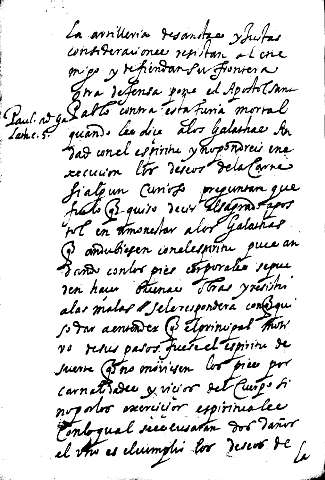 la artilleria de sanctas y Justas
consideraciones resistan al ene
migo y defiendan su frontera
otra defensa pone el Apostol san
Pablo contra esta furia mortal
Pauli. ad Ga
latas. 5.
quando les dice a los Galathas An
dad con el espiritu y no pondreis en e
xecucion los deseos de la Carne
Si algun Curioso preguntan que
fue lo q quiso decir el sagrado apos
tol en amonestar a los Galathas
q andubiesen con el espiritu pues an
dando con los pies corporales se pue
den hacer buenas obras y resistir
a las malas Se le respondera con q qui
so dar a entender q el principal moti
vo de sus pasos fuese el espiritu de
suerte q no moviesen los pies por
carnalidades y vicios del Cuerpo si
no por los exercicios espirituales
con lo qual se escusaran dos daños
el uno es el cumplir los deseos de
la